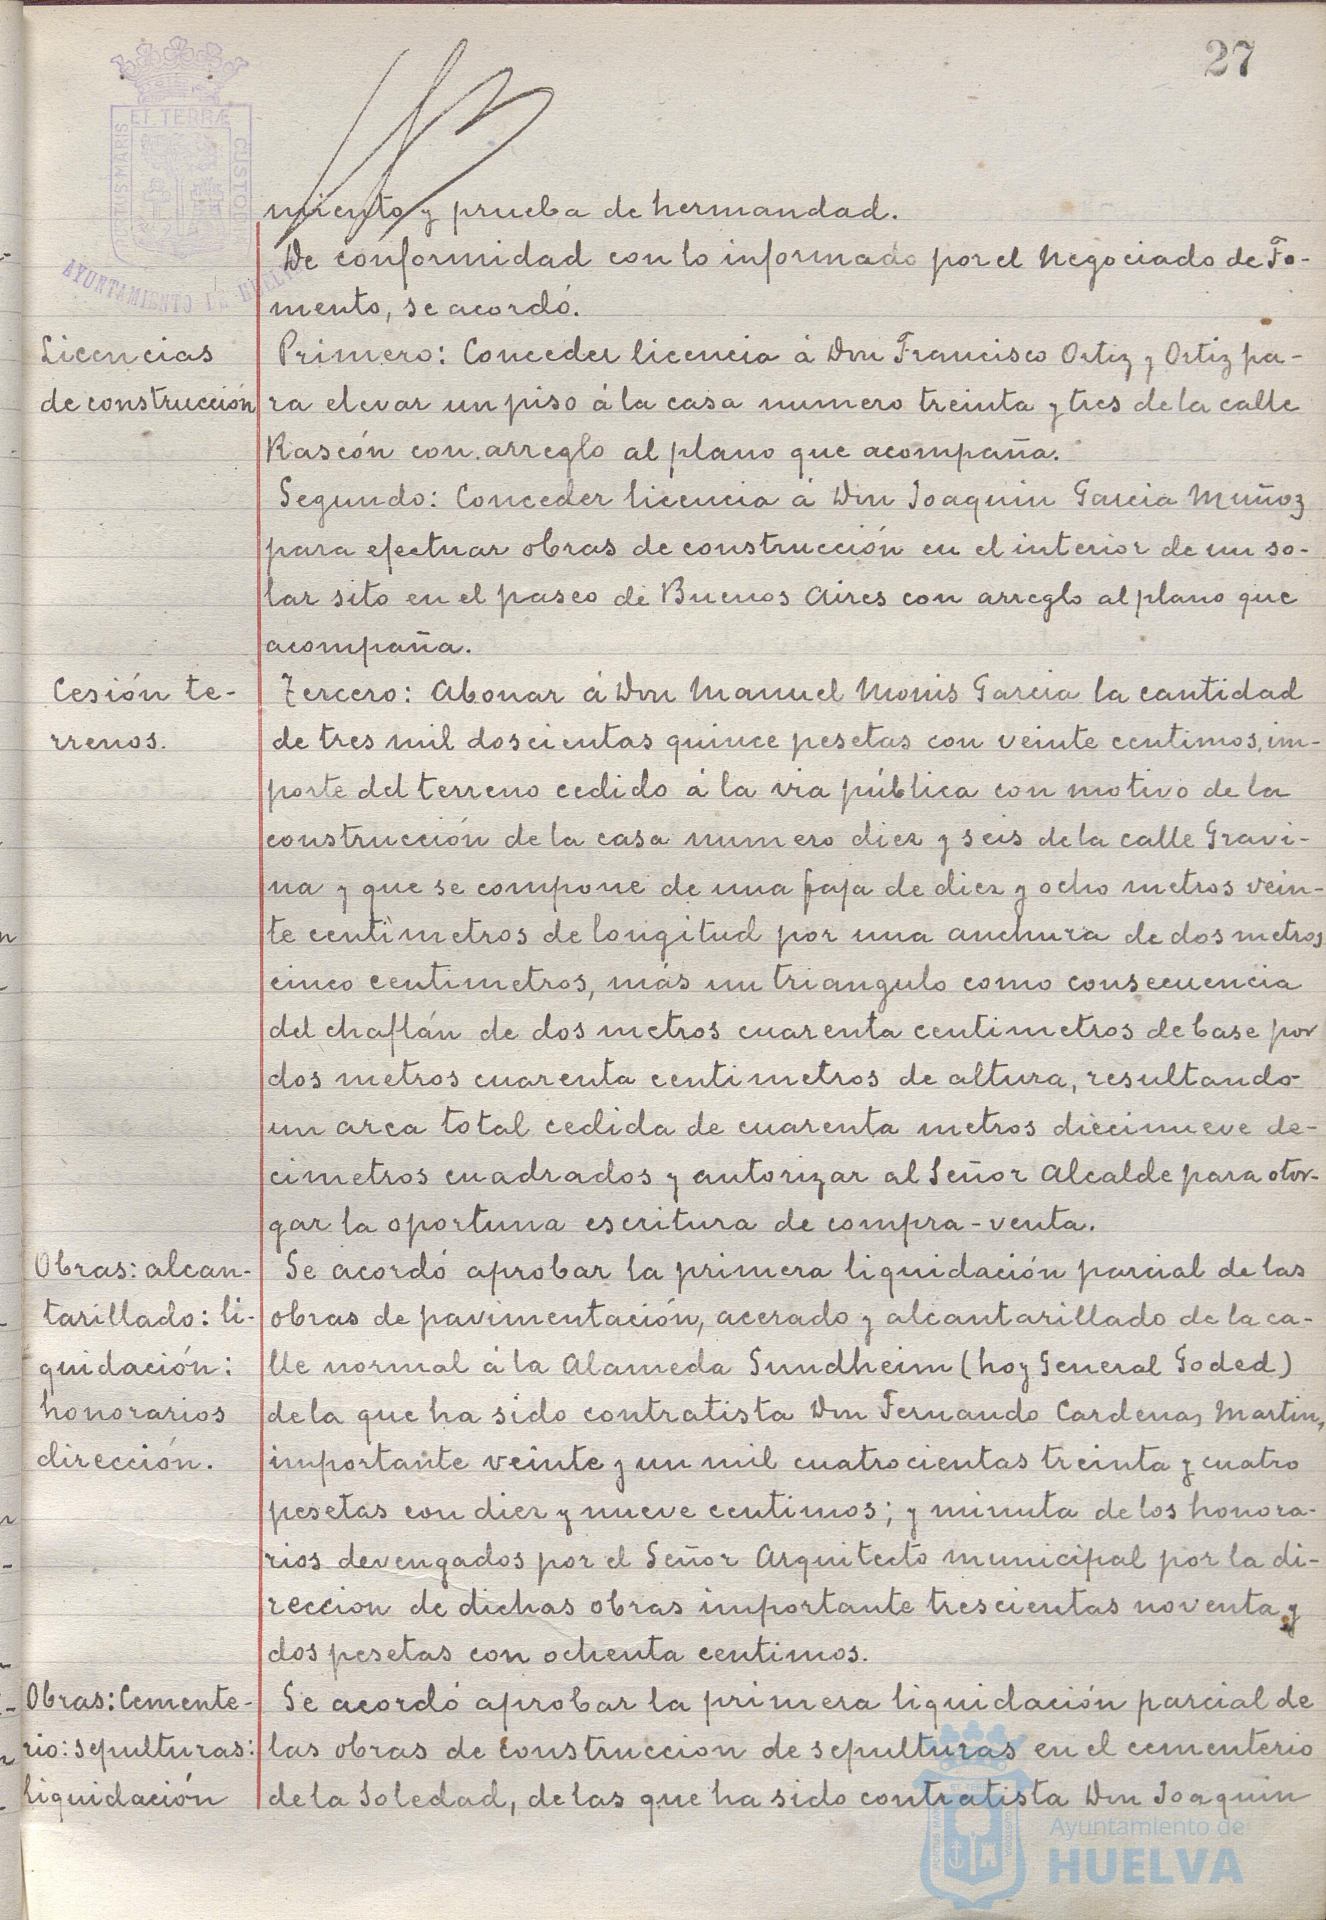 27
PORTUS MARIS ET TERRÆ CUSTODIA
AYUNTAMIENTO DE HUELVA
miento y prueba de hermandad.
De conformidad con lo informado por el Negociado de Fo-
mento, se acordó.
Licencias
de construcción
Primero: Conceder licencia á Don Francisco Ortiz y Ortiz pa-
ra elevar un piso á la casa numero treinta y tres de la calle
Rascón con arreglo al plano que acompaña.
Segundo: Conceder licencia á Don Joaquin Garcia Muñoz
para efectuar obras de construcción en el interior de un so-
lar sito en el paseo de Buenos Aires con arreglo al plano que
acompaña.
Cesión te-
rrenos.
Tercero: Abonar á Don Manuel Monis Garcia la cantidad
de tres mil doscientas quince pesetas con veinte centimos, im-
porte del terreno cedido á la via pública con motivo de la
construcción de la casa numero diez y seis de la calle Gravi-
na y que se compone de una faja de diez y ocho metros vein-
te centimetros de longitud por una anchura de dos metros
cinco centimetros, más un triangulo como consecuencia
del chaflán de dos metros cuarenta centimetros de base por
dos metros cuarenta centimetros de altura, resultando
un area total cedida de cuarenta metros diecinueve de-
cimetros cuadrados y autorizar al Señor Alcalde para otor-
gar la oportuna escritura de compra-venta.
Obras: alcan-
tarillado: li-
quidación:
honorarios
dirección.
Se acordó aprobar la primera liquidación parcial de las
obras de pavimentación, acerado y alcantarillado de la ca-
lle normal á la Alameda Sundheim (hoy General Goded)
de la que ha sido contratista Don Fernando Cardenas Martin,
importante veinte y un mil cuatrocientas treinta y cuatro
pesetas con diez y nueve centimos; y minuta de los honora-
rios devengados por el Señor Arquitecto municipal por la di-
reccion de dichas obras importante trescientas noventa y
dos pesetas con ochenta centimos.
Obras: Cemente-
rio: sepulturas:
liquidación
Se acordó aprobar la primera liquidación parcial de
las obras de construccion de sepulturas en el cementerio
de la Soledad, de las que ha sido contratista Don Joaquin
Ayuntamiento de
HUELVA